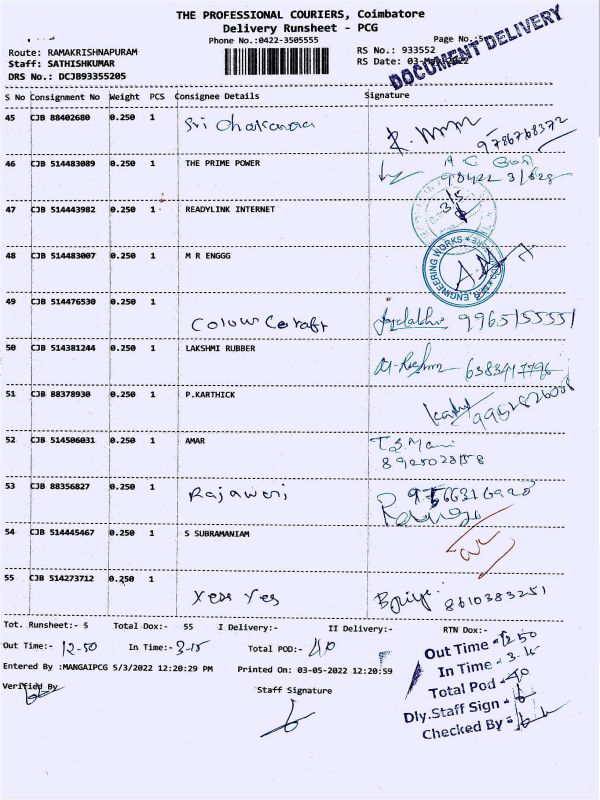 THE PROFESSIONAL COURIERS, Coimbatore
Delivery Runsheet - PCG
Phone No.:0422-3505555
Page No.:5
Route: RAMAKRISHNAPURAM
RS No.: 933552
Staff: SATHISHKUMAR
RS Date: 03-May-2022
DRS No.: DCJB93355205
DOCUMENT DELIVERY
S No Consignment No Weight PCS Consignee Details Signature
45 CJB 88402680 0.250 1
9786768372
46 CJB 514483089 0.250 1 THE PRIME POWER
47 CJB 514443982 0.250 1 READYLINK INTERNET
48 CJB 514483007 0.250 1 M R ENGGG
ENGINEERING WORKS
49 CJB 514476530 0.250 1
Colour Craft 9965155551
50 CJB 514381244 0.250 1 LAKSHMI RUBBER
6383417796
51 CJB 88378930 0.250 1 P.KARTHICK
52 CJB 514506031 0.250 1 AMAR
T.S. Mani
8925028158
53 CJB 88356827 0.250 1
Rajaweri
54 CJB 514445467 0.250 1 S SUBRAMANIAM
55 CJB 514273712 0.250 1
Yes 8610383251
Tot. Runsheet:- 5 Total Dox:- 55 I Delivery:- II Delivery:- RTN Dox:-
Out Time:- 12-50 In Time:- 3-15 Total POD:- 40
Out Time - 12.50
In Time - 3.15
Total Pod - 40
Dly.Staff Sign -
Checked By -
Entered By :MANGAIPCG 5/3/2022 12:20:29 PM Printed On: 03-05-2022 12:20:59
Verified By
Staff Signature